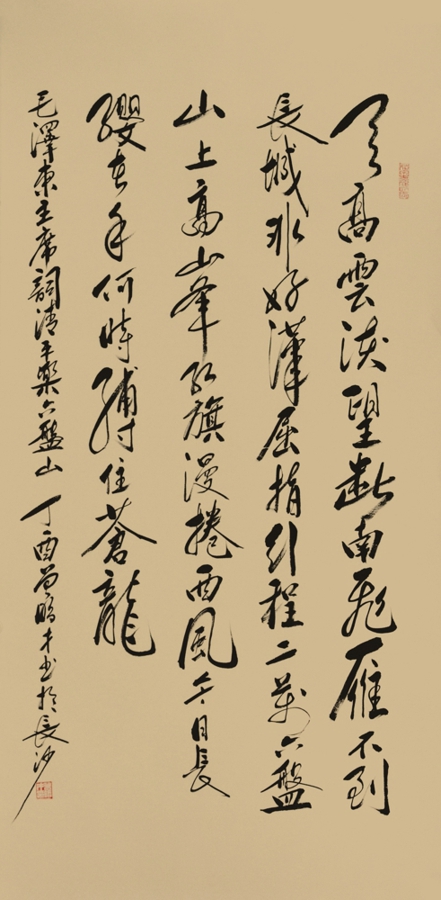 天高雲淡望斷南飛雁不到
長城非好漢屈指行程二萬六盤
山上高峯紅旗漫捲西風今日長
纓在手何時縛住蒼龍
毛澤東主席詞清平樂六盤山 丁酉曾鵬才书於長沙